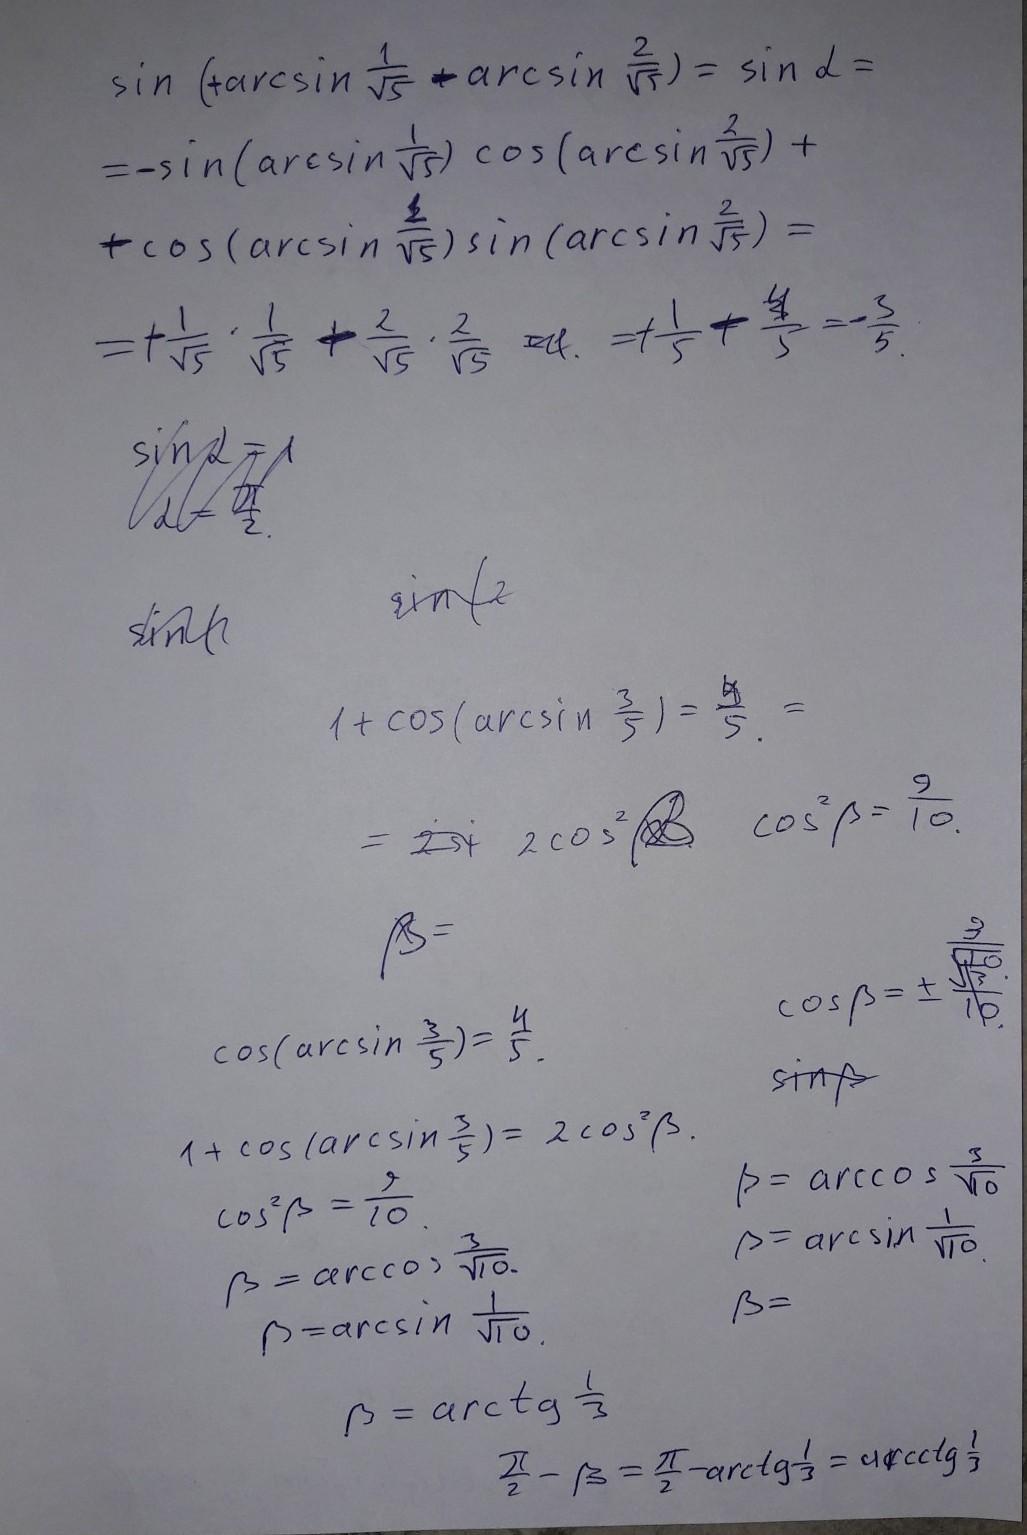 sin (+arcsin 1/√5 + arcsin 2/√5) = sin α =
= -sin(arcsin 1/√5) cos(arcsin 2/√5) +
+ cos(arcsin 1/√5) sin(arcsin 2/√5) =
= + 1/√5 · 1/√5 + 2/√5 · 2/√5 = + 1/5 + 4/5 = -3/5.
sin α = 1
α = π/2.
sin(2
1 + cos(arcsin 3/5) = 9/5. =
= 2cos²β cos²β = 9/10.
β =
cosβ = ± 3/√10.
cos(arcsin 3/5) = 4/5.
sinβ
1 + cos(arcsin 3/5) = 2cos²β.
β = arccos 3/√10
cos²β = 9/10.
β = arcsin 1/√10.
β = arccos 3/√10.
β =
β = arcsin 1/√10.
β = arctg 1/3
π/2 - β = π/2 - arctg 1/3 = arcctg 1/3